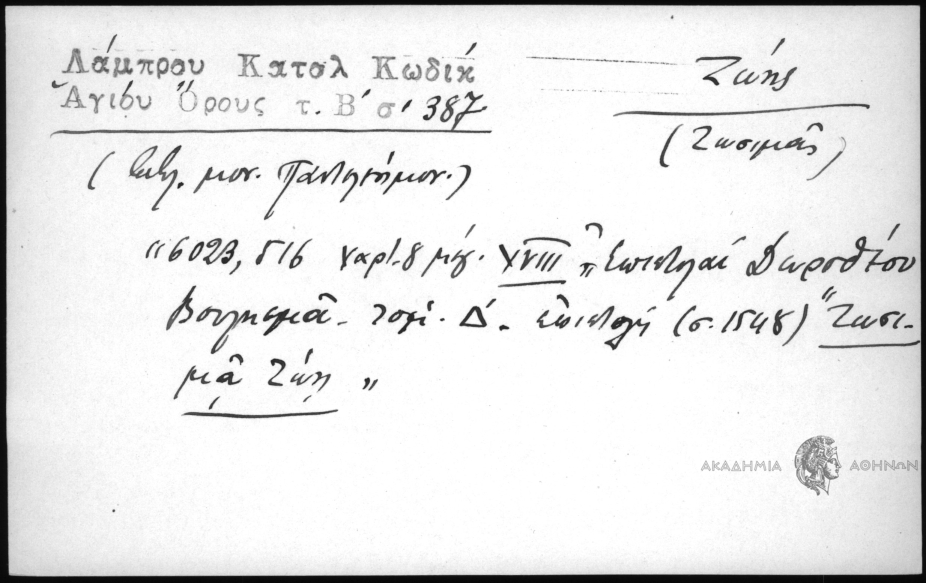 Λάμπρου Κατσλ Κωδικ
Ἁγίου Ὄρους τ. Β΄ σ. 387.
Ζώης
(Ζωσιμᾶς)
μον. Παντελεήμον.)
"6023,516 χαρτ. 8 μεγ. XVIII "Ἐπιστολαὶ Δωροθέου
Βουλησμᾶ. τομ. Δ. ἐπιστολή (σ. 1548) "Ζωσι-
μᾷ Ζώῃ "
ΑΚΑΔΗΜΙΑ ΑΘΗΝΩΝ